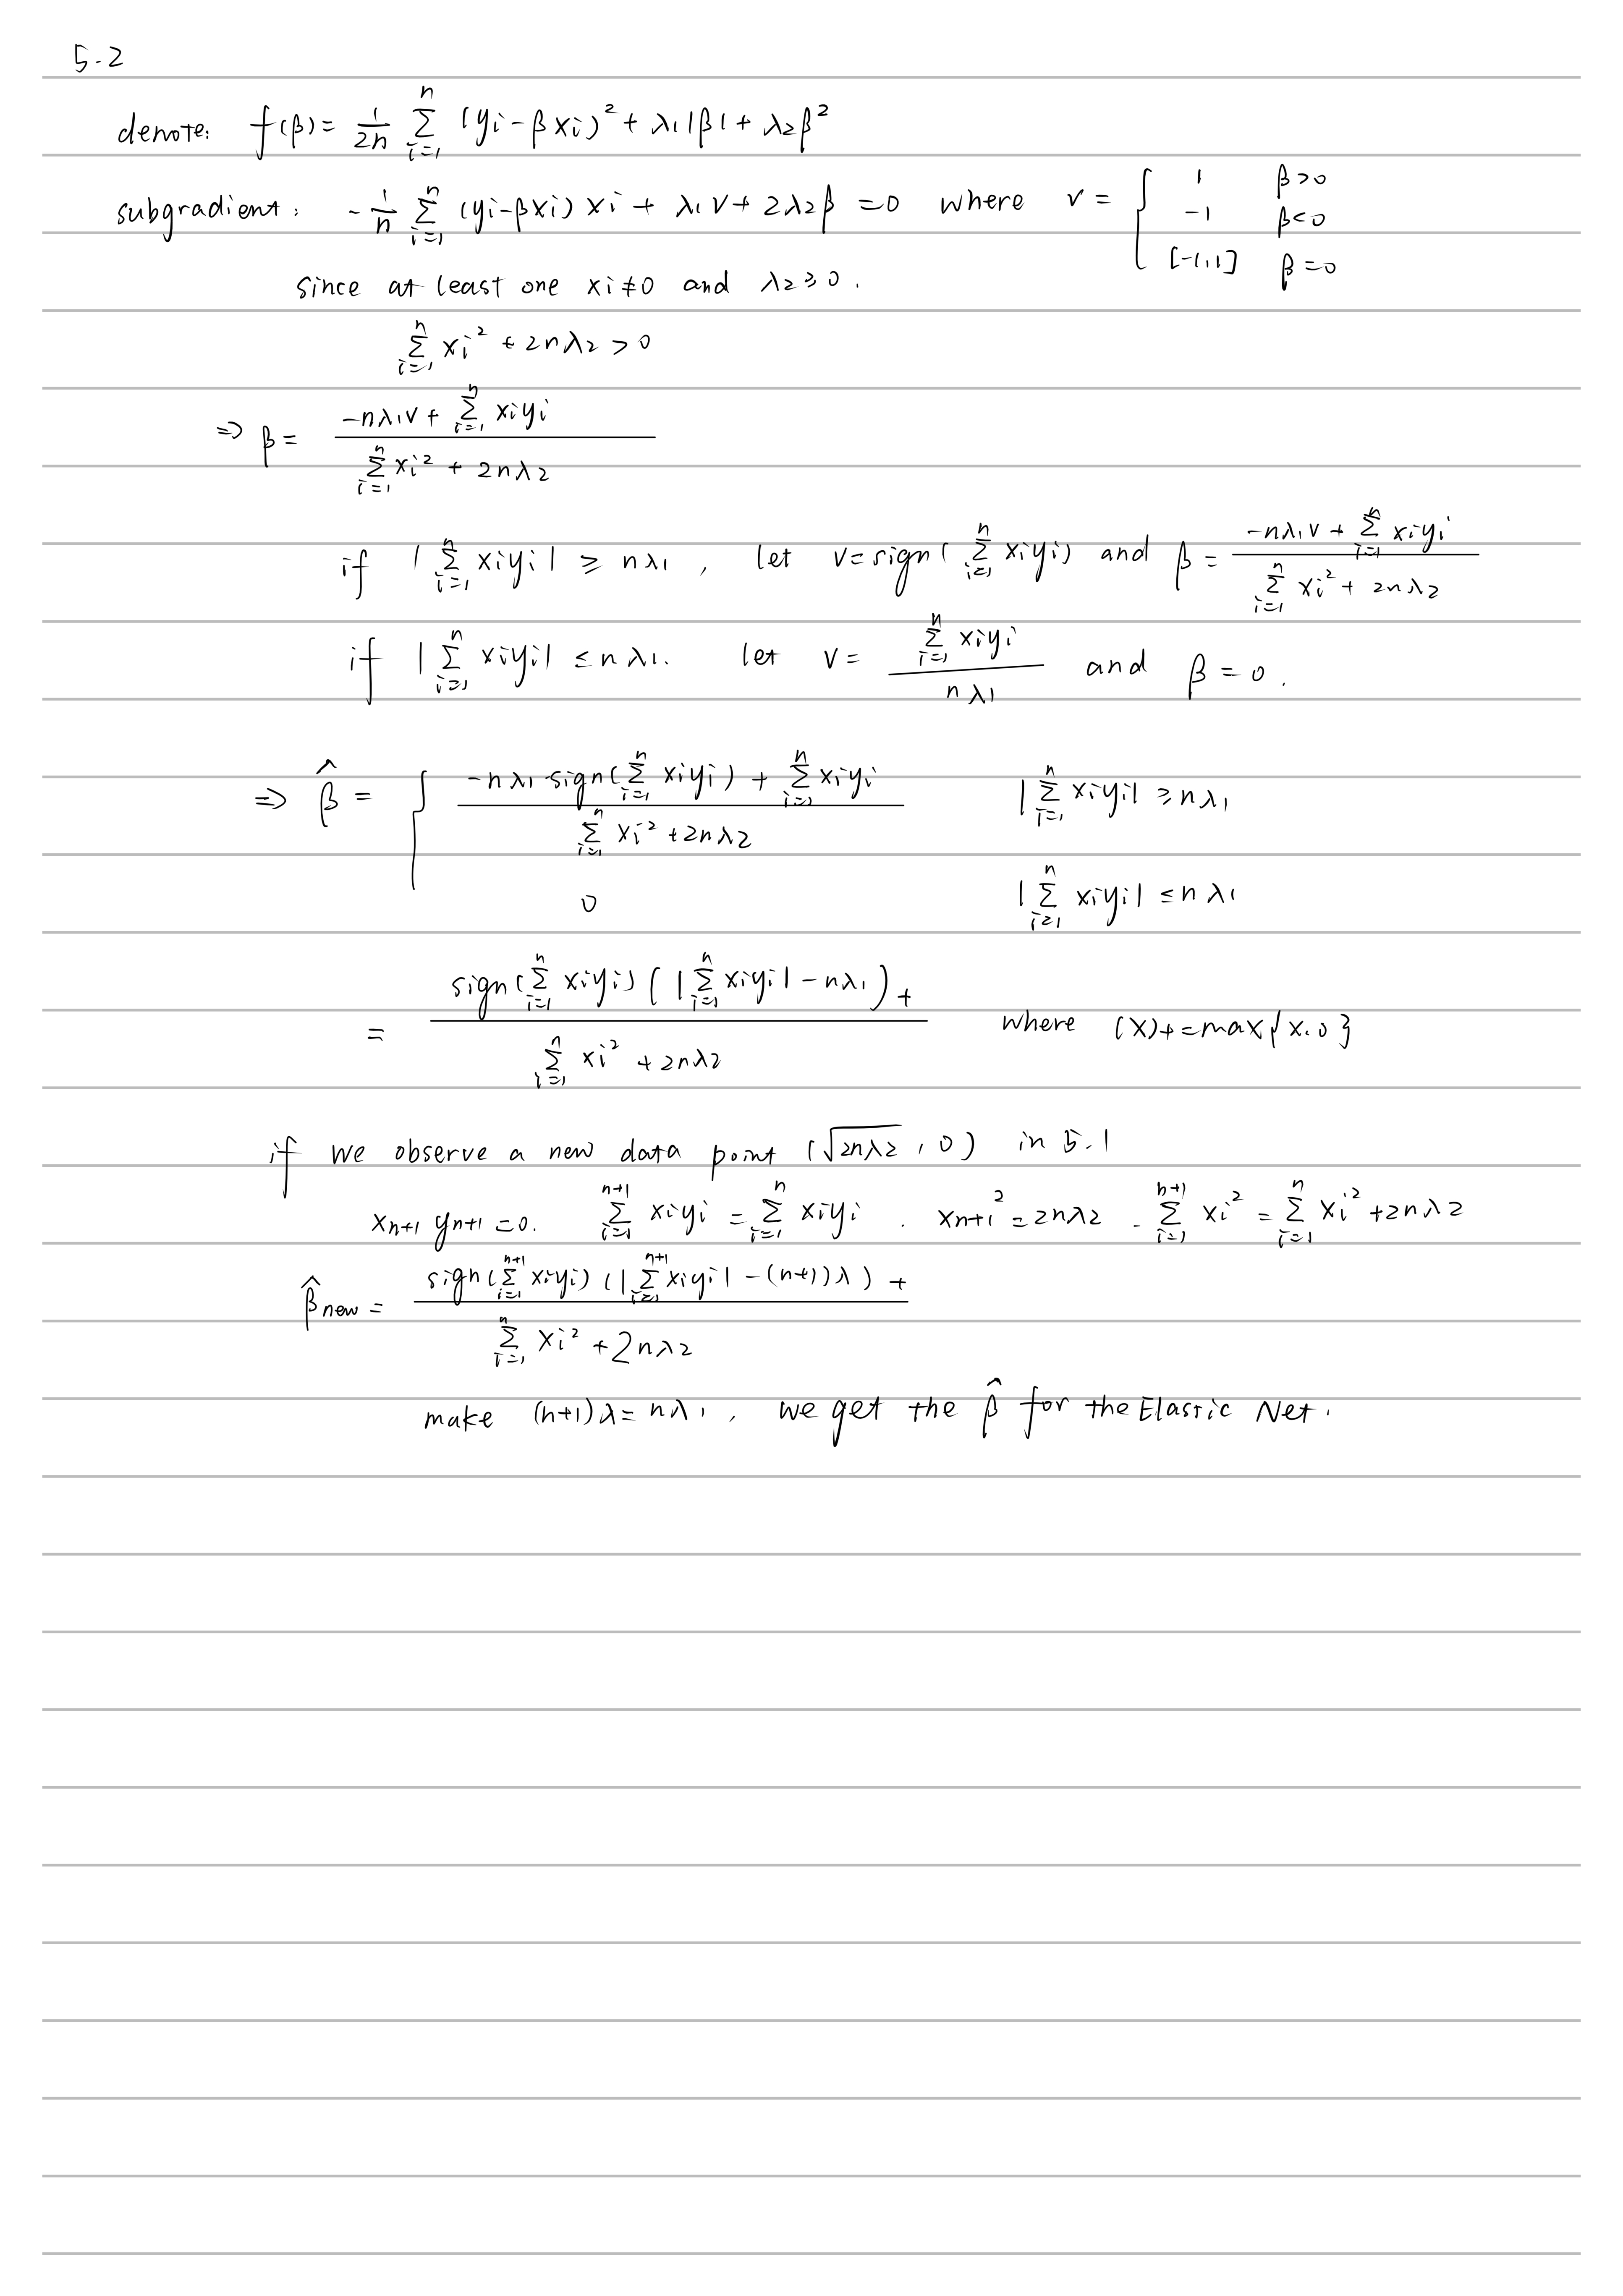 5.2
denote: f(β) = 1/2n Σ_{i=1}^{n} (yi - βxi)² + λ1|β| + λ2β²
subgradient: -1/n Σ_{i=1}^{n} (yi - βxi) xi + λ1v + 2λ2β = 0 where v = { 1 β>0
-1 β<0
[-1,1] β=0
since at least one xi ≠ 0 and λ2 ≥ 0.
Σ_{i=1}^{n} xi² + 2nλ2 > 0
⇒ β = (-nλ1v + Σ_{i=1}^{n} xiyi) / (Σ_{i=1}^{n} xi² + 2nλ2)
if |Σ_{i=1}^{n} xiyi| ≥ nλ1, let v = sign(Σ_{i=1}^{n} xiyi) and β = (-nλ1v + Σ_{i=1}^{n} xiyi) / (Σ_{i=1}^{n} xi² + 2nλ2)
if |Σ_{i=1}^{n} xiyi| ≤ nλ1. let v = (Σ_{i=1}^{n} xiyi) / (nλ1) and β = 0.
⇒ β̂ = { (-nλ1·sign(Σ_{i=1}^{n} xiyi) + Σ_{i=1}^{n} xiyi) / (Σ_{i=1}^{n} xi² + 2nλ2) |Σ_{i=1}^{n} xiyi| ≥ nλ1
0 |Σ_{i=1}^{n} xiyi| ≤ nλ1
= sign(Σ_{i=1}^{n} xiyi) (|Σ_{i=1}^{n} xiyi| - nλ1)+ / (Σ_{i=1}^{n} xi² + 2nλ2) where (x)+ = max{x.0}
if we observe a new data point (√2nλ2, 0) in 5.1
xn+1 yn+1 = 0. Σ_{i=1}^{n+1} xiyi = Σ_{i=1}^{n} xiyi . xn+1² = 2nλ2 . Σ_{i=1}^{n+1} xi² = Σ_{i=1}^{n} xi² + 2nλ2
β̂new = sign(Σ_{i=1}^{n+1} xiyi) (|Σ_{i=1}^{n+1} xiyi| - (n+1)λ)+ / (Σ_{i=1}^{n} xi² + 2nλ2)
make (n+1)λ = nλ1, we get the β̂ for the Elastic Net.